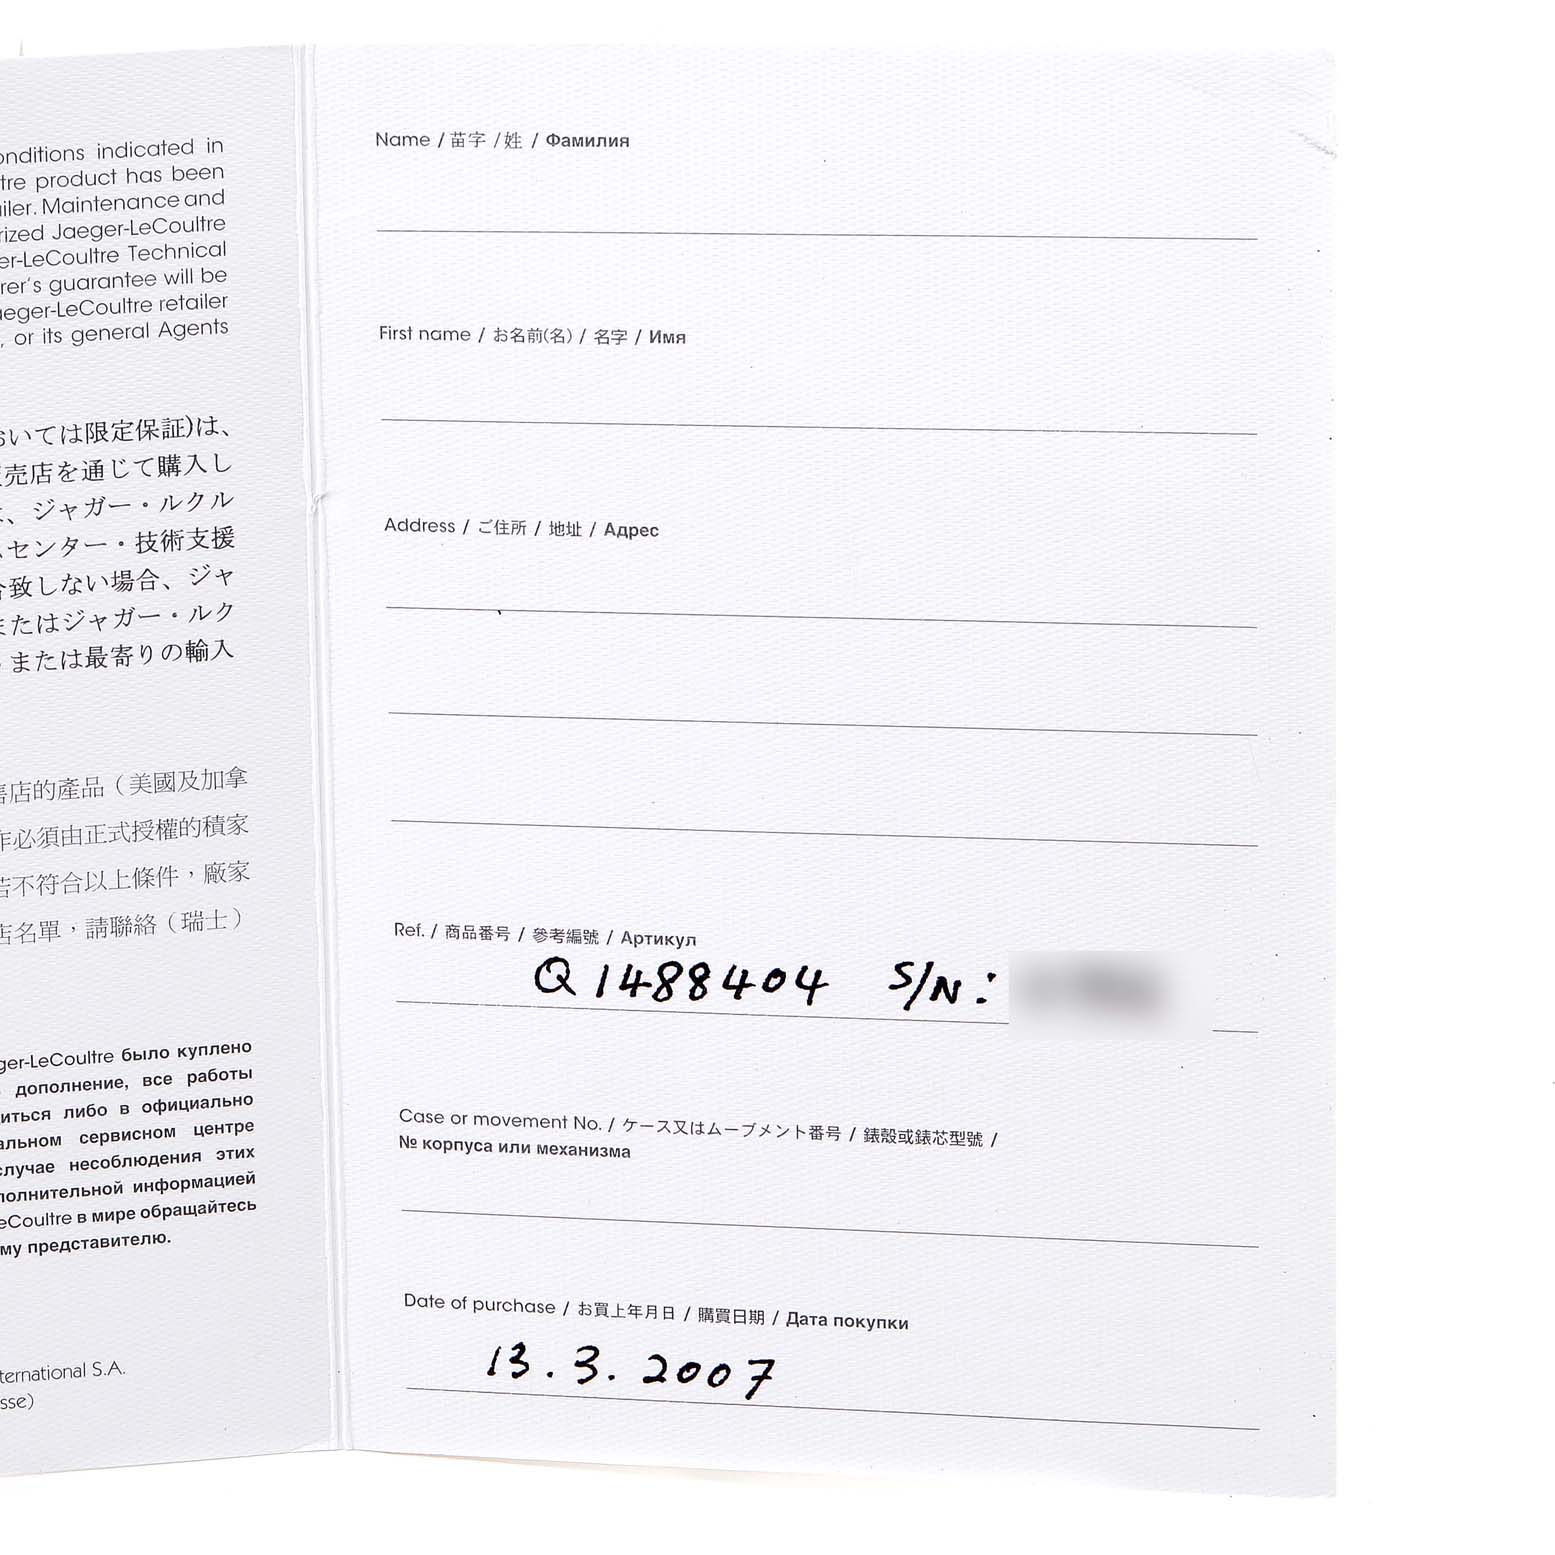 onditions indicated in
tre product has been
iler. Maintenance and
rized Jaeger-LeCoultre
er-LeCoultre Technical
rer's guarantee will be
aeger-LeCoultre retailer
, or its general Agents
おいては限定保証)は、
売店を通じて購入し
、ジャガー・ルクル
センター・技術支援
合致しない場合、ジャ
またはジャガー・ルク
または最寄りの輸入
售店的產品（美國及加拿
作必須由正式授權的積家
若不符合以上條件，廠家
店名單，請聯絡（瑞士）
ger-LeCoultre было куплено
дополнение, все работы
иться либо в официально
альном сервисном центре
случае несоблюдения этих
полнительной информацией
eCoultre в мире обращайтесь
му представителю.
ternational S.A.
sse)
Name / 苗字 / 姓 / Фамилия
First name / お名前(名) / 名字 / Имя
Address / ご住所 / 地址 / Адрес
Ref. / 商品番号 / 參考編號 / Артикул
Q1488404 S/N:
Case or movement No. / ケース又はムーブメント番号 / 錶殼或錶芯型號 /
№ корпуса или механизма
Date of purchase / お買上年月日 / 購買日期 / Дата покупки
13.3.2007